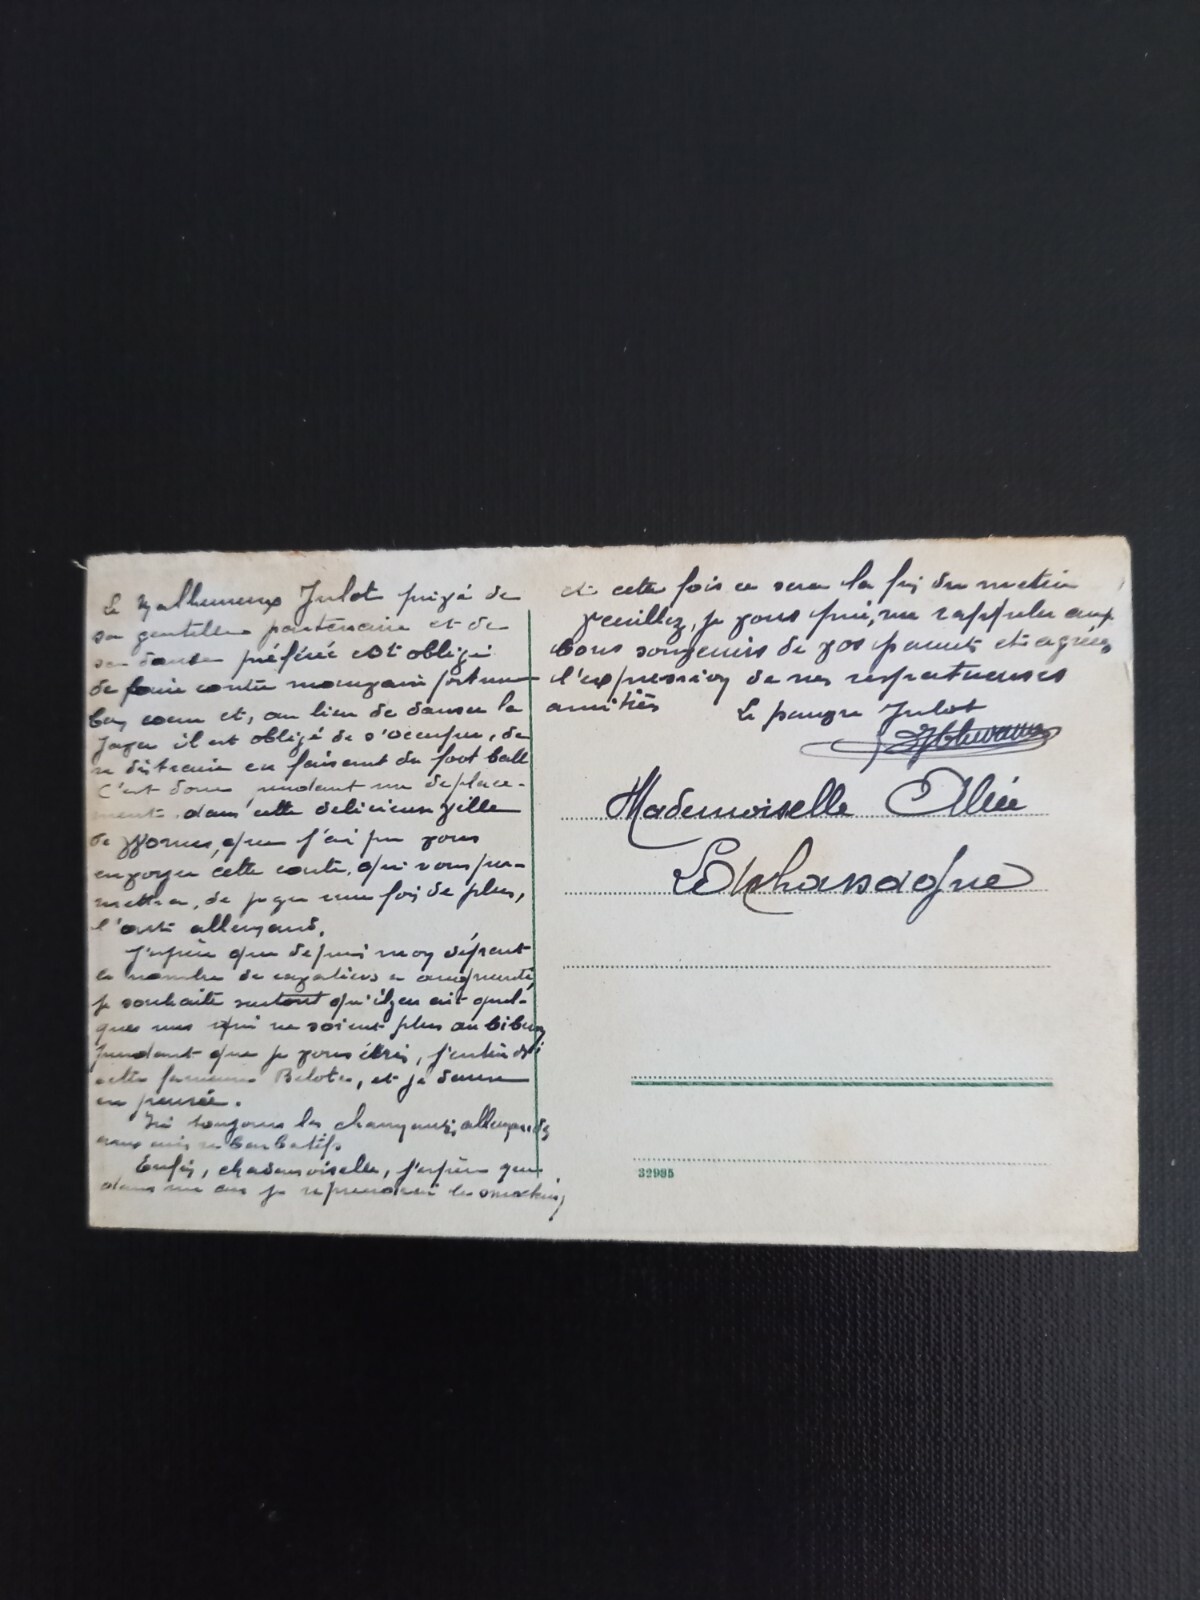 Le Malheureux Julot privé de
sa gentille partenaire et de
sa danse préférée est obligé
de faire contre mauvaise fortune
bon coeur et, au lieu de danser la
Java il est obligé de s'occuper, de
se distraire en faisant du foot ball
C'est donc pendant un déplace-
ment dans cette délicieuse ville
de Worms, que j'ai pu vous
envoyer cette carte, qui vous per-
mettra, de juger une fois de plus,
l'art allemand.
J'espère que depuis mon départ
le nombre de cavaliers a augmenté,
je souhaite surtout qu'il y en ait quel-
ques uns qui ne soient plus au biberon
pendant que je vous écris, j'entends d'ici
cette fameuse Belote, et je danse
en pensée.
Ici toujours les charmants allemands
mais rebarbatifs
Enfin, Mademoiselle, j'espère que
dans un an je reprendrai le smoking
et cette fois ce sera la fin du
Veuillez, je vous prie, me rappeler aux
bons souvenirs de vos parents et agréez
l'expression de mes respectueuses
amitiés Le pauvre Julot
Mademoiselle Alice
32985